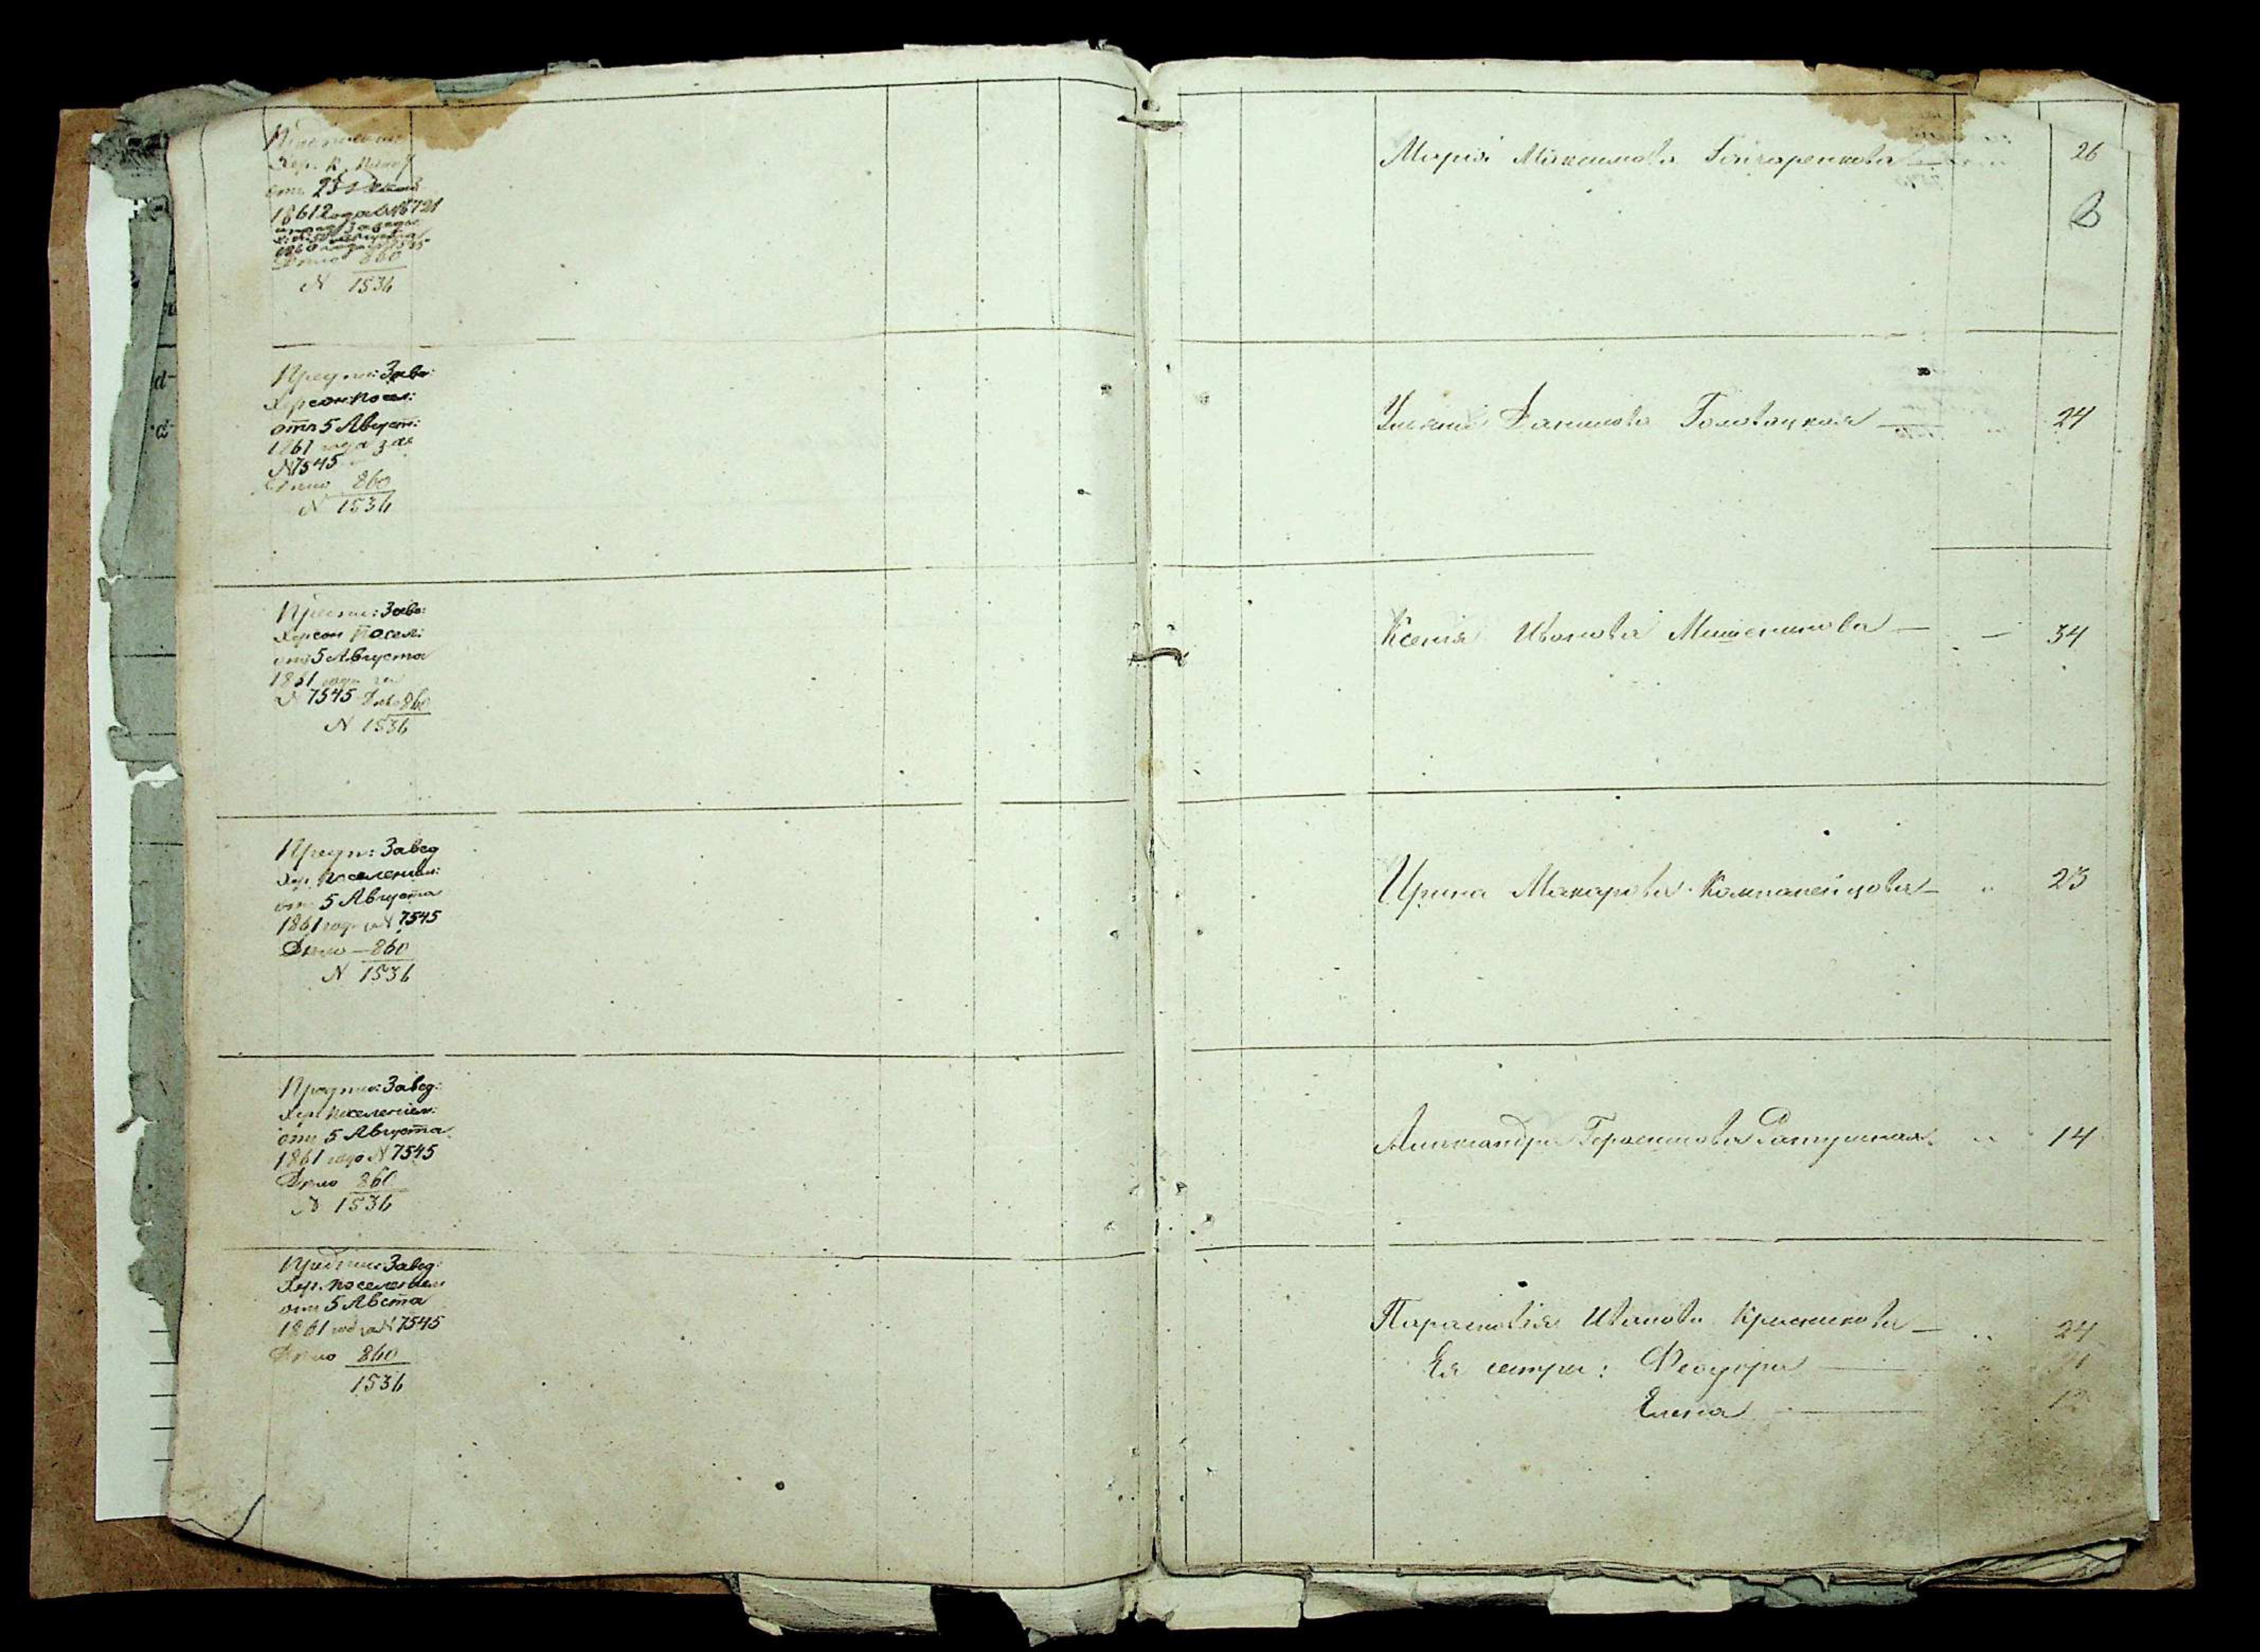 Хер.
отъ 23
1861 года № 8721
860
N 1536
Предпи: Завѣ:
Херсон: Посел:
отъ 5 Август:
1861 года за
N 7545
Дѣло 860
N 1536
Предпи: Завѣ:
Херсон Посел:
отъ 5 Августа
1861 года за
N 7545 Дѣло 860
N 1536
Предп: Завед
Хер. Поселеніем:
отъ 5 Августа
1861 года N 7545
Дѣло — 860
N 1536
Предпи: Завед:
Хер. Поселеніем:
отъ 5 Августа
1861 года N 7545
Дѣло 860
N 1536
Предпис: Завед:
Хер. Поселеніем
отъ 5 Авста
1861 года N 7545
Дѣло 860
1536
Марія Максимова Гончаренкова — 26
Ульяна Данилова Головацкая — 24
Ксенія Иванова Мишенкова — 34
Ирина Макарова Компанейцова — 23
Александра Герасимова 14
Парасковія Иванова — 24
Ея сестра: Феодора
Елена